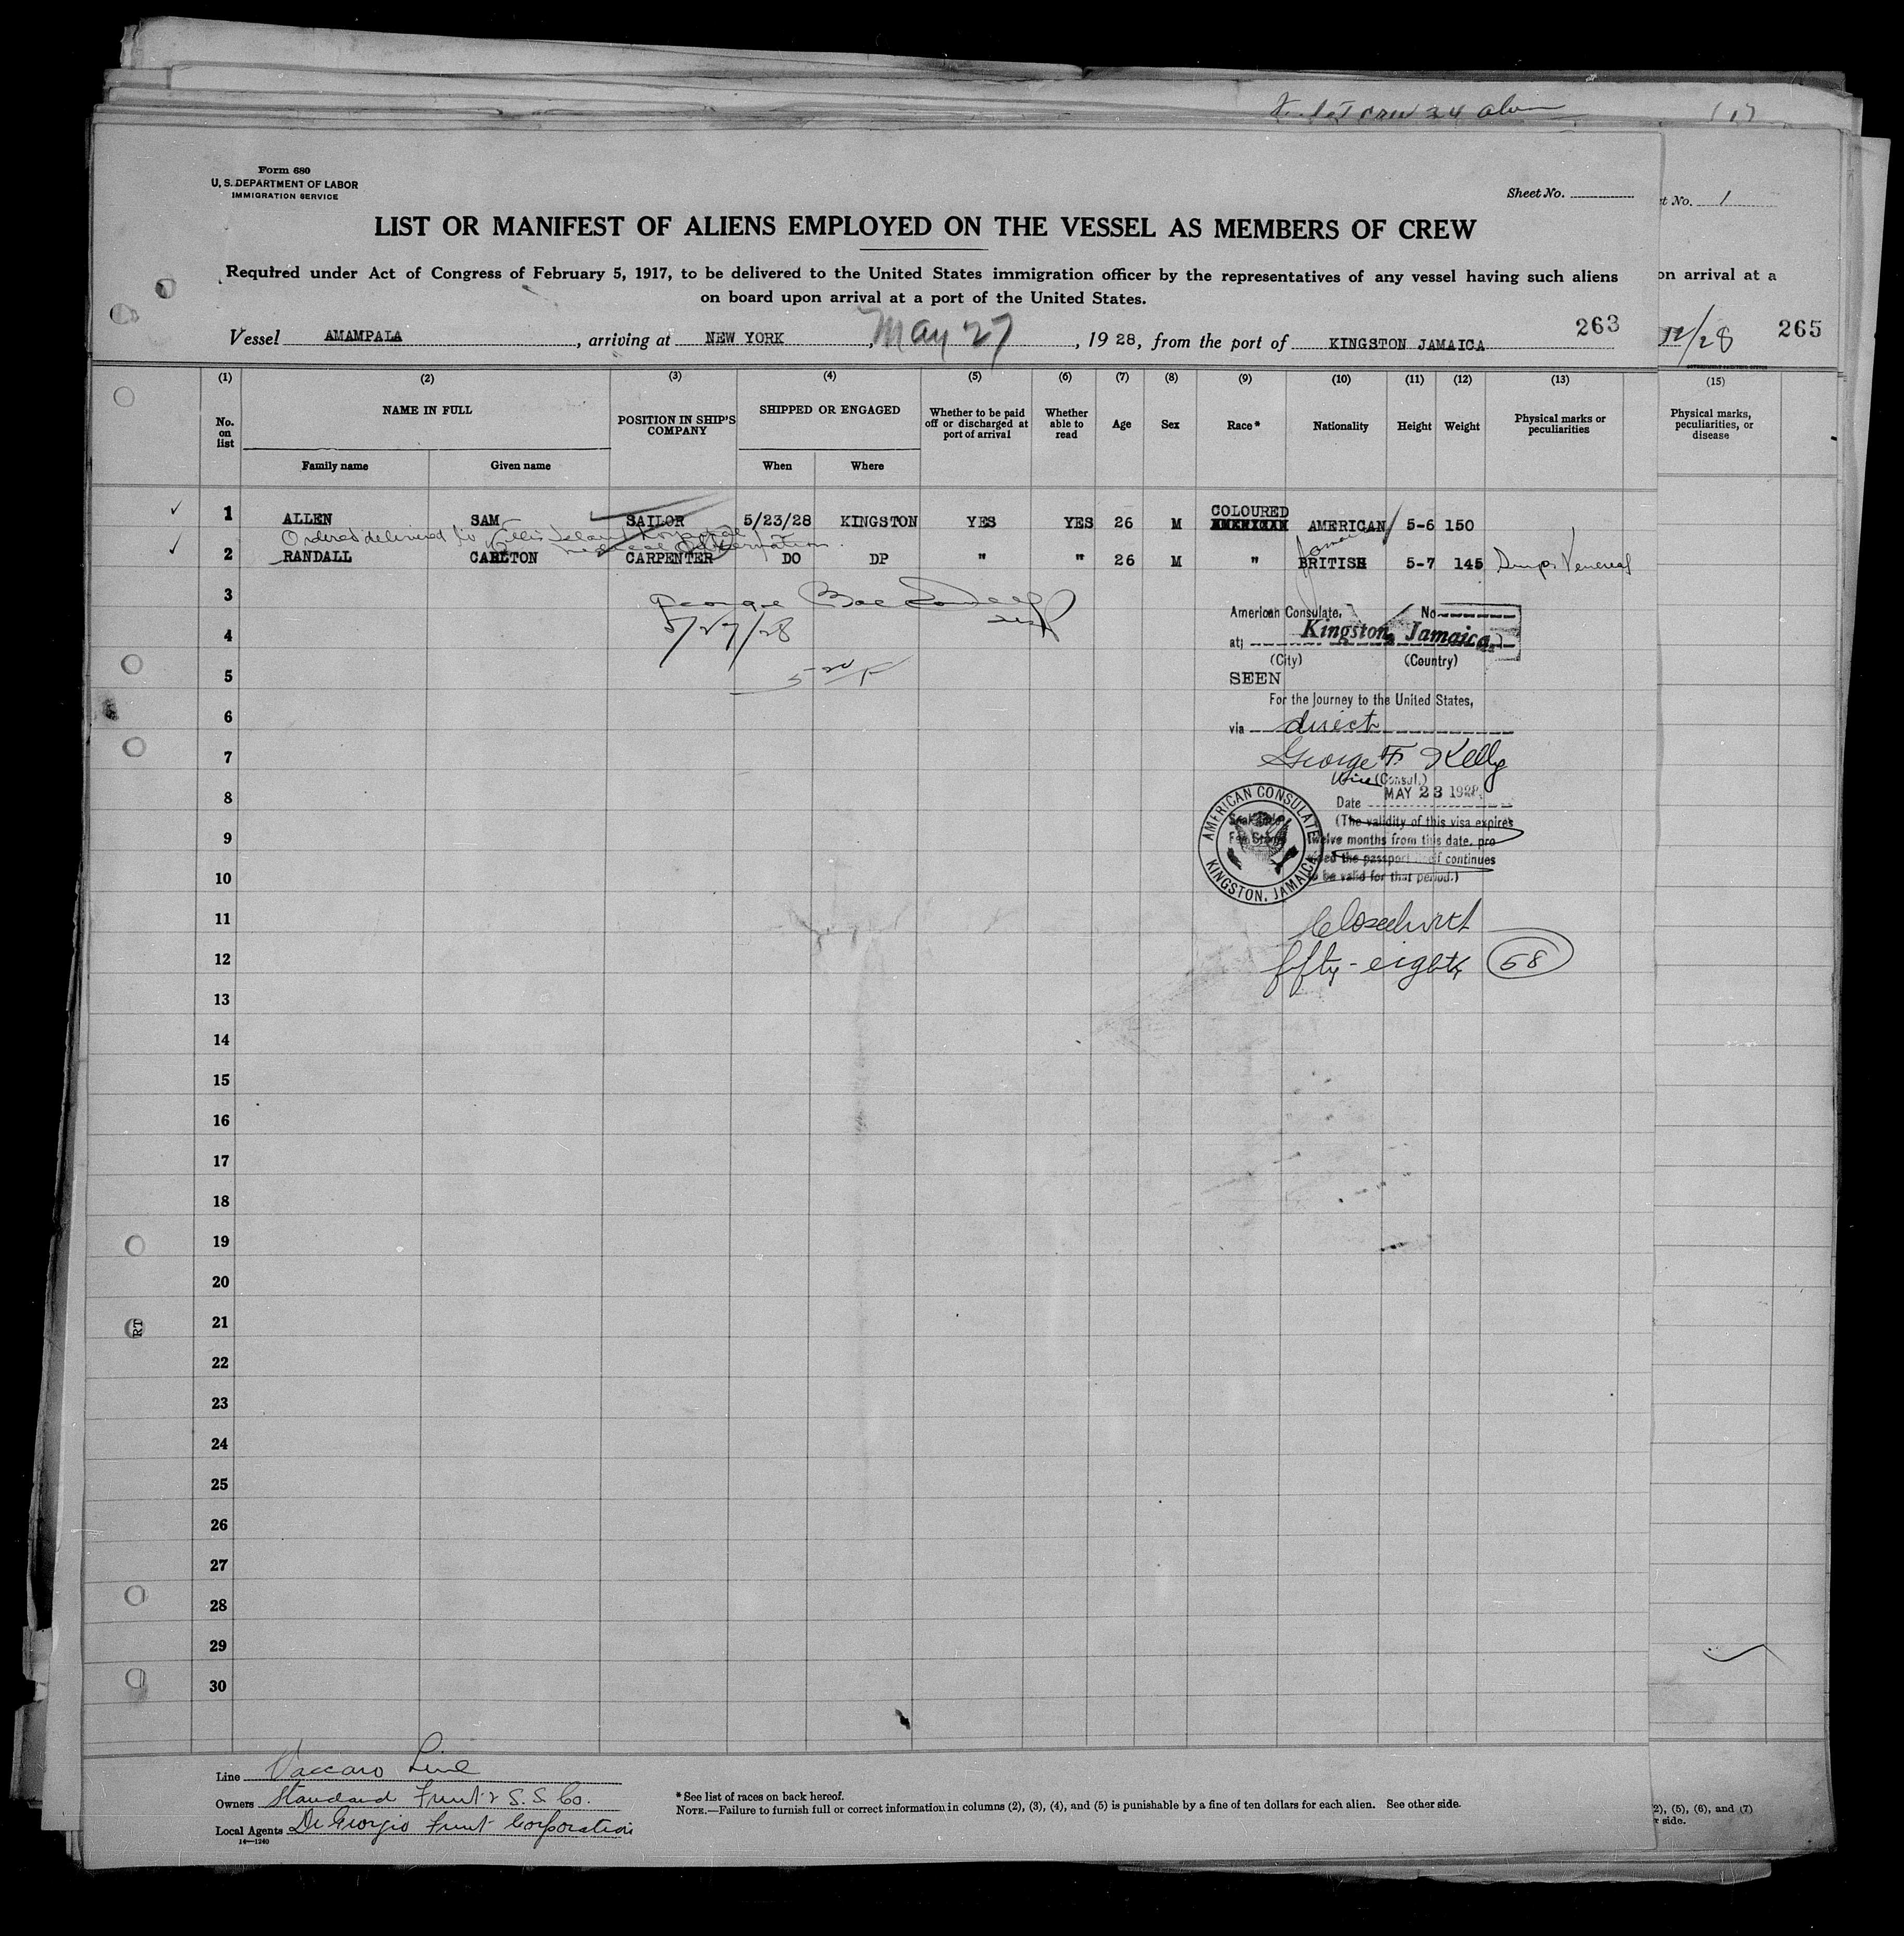 crew 34
Form 680
U. S. DEPARTMENT OF LABOR
IMMIGRATION SERVICE
Sheet No.
t No. 1
LIST OR MANIFEST OF ALIENS EMPLOYED ON THE VESSEL AS MEMBERS OF CREW
Required under Act of Congress of February 5, 1917, to be delivered to the United States immigration officer by the representatives of any vessel having such aliens
on board upon arrival at a port of the United States.
on arrival at a
Vessel AMAMPALA, arriving at NEW YORK, May 27, 1928, from the port of KINGSTON JAMAICA 263
/28 265
(1) (2) (3) (4) (5) (6) (7) (8) (9) (10) (11) (12) (13) (15)
No. on list
NAME IN FULL
Family name Given name
POSITION IN SHIP'S COMPANY
SHIPPED OR ENGAGED
When Where
Whether to be paid off or discharged at port of arrival
Whether able to read
Age
Sex
Race*
Nationality
Height
Weight
Physical marks or peculiarities
Physical marks, peculiarities, or disease
COLOURED
1 ALLEN SAM SAILOR 5/23/28 KINGSTON YES YES 26 M AMERICAN AMERICAN 5-6 150
Ordered delivered to Ellis Island Hospital
for medical observation.
Jamaica
2 RANDALL CARLTON CARPENTER DO DP " " 26 M " BRITISH 5-7 145 Venereal
3 George
4 5/27/28
5
6
7
8
9
10
11
12
13
14
15
16
17
18
19
20
21
22
23
24
25
26
27
28
29
30
American Consulate, No
at; Kingston, Jamaica.
(City) (Country)
SEEN
For the Journey to the United States,
via direct
George F. Kelly
Vice (Consul.)
Date MAY 23 1928
(The validity of this visa expires
twelve months from this date, pro
the passport itself continues
be valid for that period.)
AMERICAN CONSULATE
KINGSTON, JAMAICA
fifty-eight 58
RT
Line Vaccaro Line
Owners Standard Fruit & S.S. Co.
Local Agents Di Giorgio Fruit Corporation
14—1240
* See list of races on back hereof.
NOTE.—Failure to furnish full or correct information in columns (2), (3), (4), and (5) is punishable by a fine of ten dollars for each alien. See other side.
2), (5), (6), and (7)
r side.